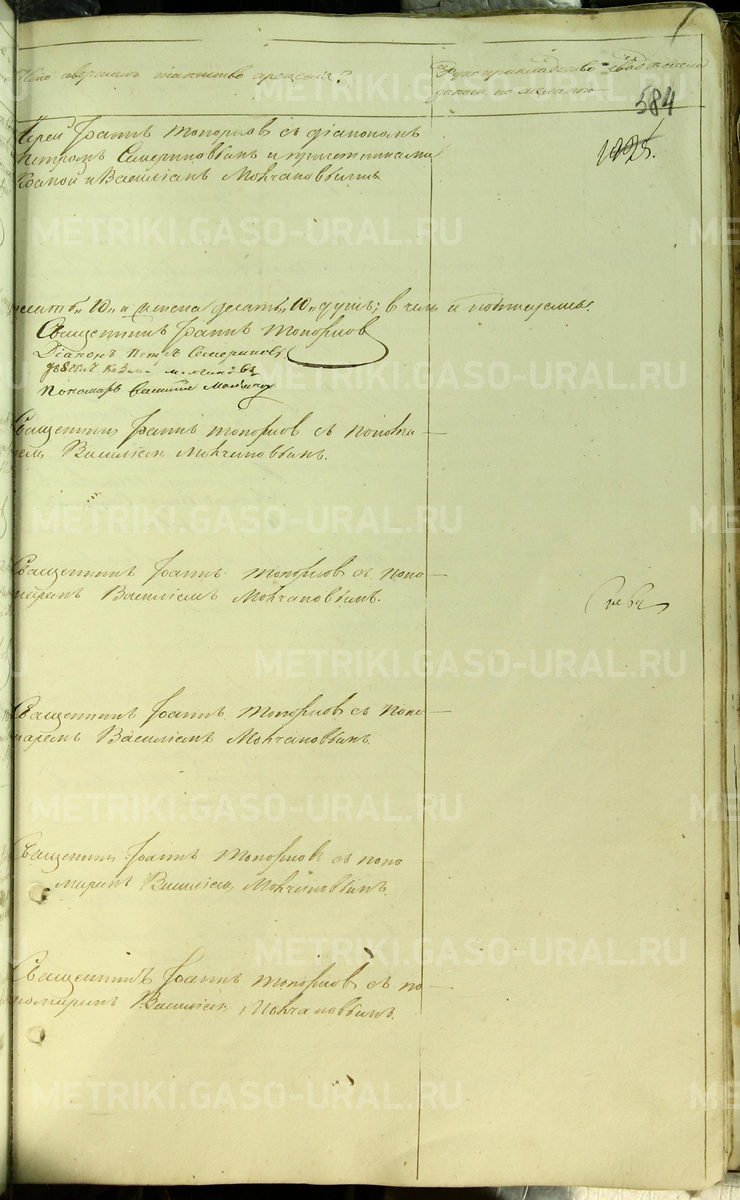 Кто совершилъ таинство крещенія?
Рукоприкладство свидетелей
записи по желанію
584
1025.
Іерей Іоаннъ Топорковъ съ діакономъ
Петромъ Семериковымъ и причетниками
Козмой и Василіемъ Молчановыми
десять „10„ и женска десять „10„ душъ; въ чемъ и подпишемся.
Священникъ Іоаннъ Топорковъ
Діаконъ Петръ Семериковъ
Пономарь Василій Молчановъ
Священникъ Іоаннъ Топорковъ съ понома
ремъ Василіемъ Молчановымъ.
Священникъ Іоаннъ Топорковъ съ поно
маремъ Василіемъ Молчановымъ.
Священникъ Іоаннъ Топорковъ съ поно
маремъ Василіемъ Молчановымъ.
Священникъ Іоаннъ Топорковъ съ поно
маремъ Василіемъ Молчановымъ.
Священникъ Іоаннъ Топорковъ съ по
номаремъ Василіемъ Молчановымъ.
METRIKI.GASO-URAL.RU